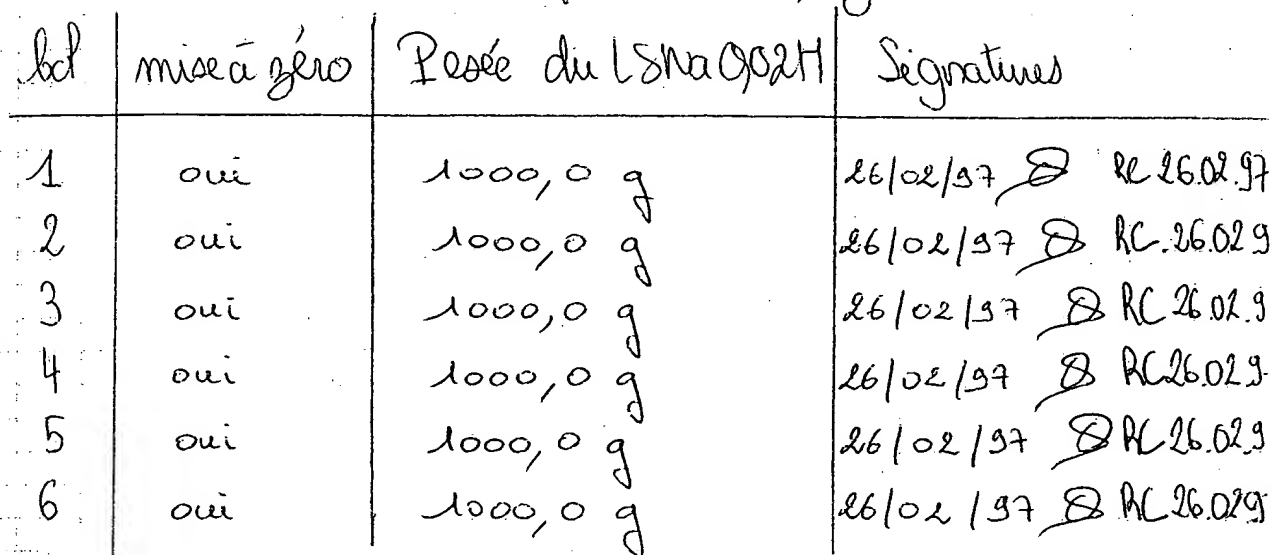 bcl mise à zéro Pesée du LSNa 0,02H Signatures
1 oui 1000,0 g 26/02/97 RC 26.02.97
2 oui 1000,0 g 26/02/97 RC.26.029
3 oui 1000,0 g 26/02/97 RC 26.02.9
4 oui 1000,0 g 26/02/97 RC26.029.
5 oui 1000,0 g 26/02/97 RC 26.02.9
6 oui 1000,0 g 26/02/97 RC 26.029